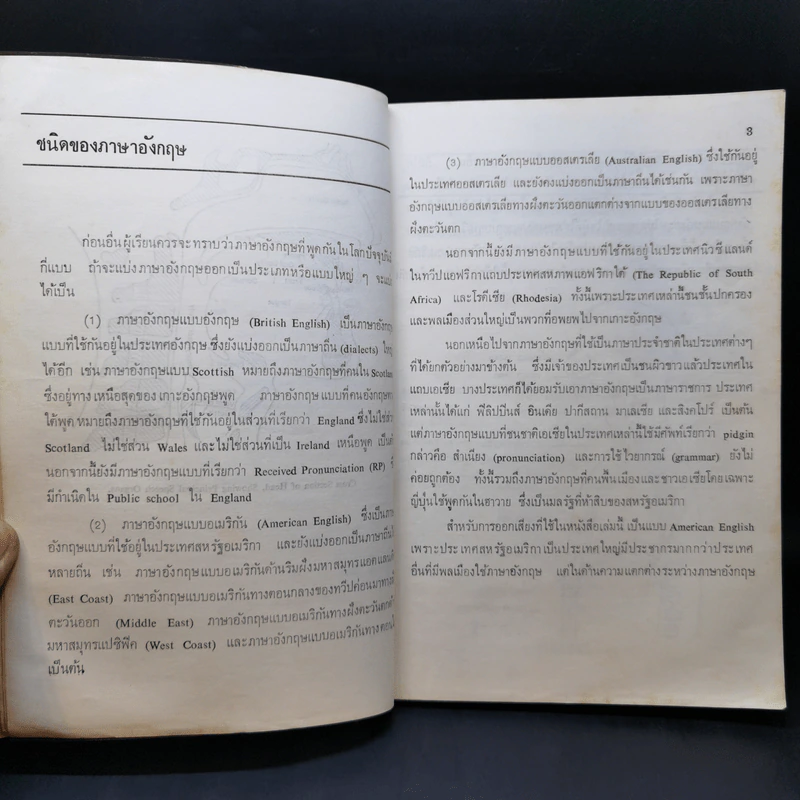 ชนิดของภาษาอังกฤษ
ก่อนอื่นผู้เรียนควรจะทราบว่าภาษาอังกฤษที่พูดกันในโลกปัจจุบันมี
กี่แบบ ถ้าจะแบ่งภาษาอังกฤษออกเป็นประเภทหรือแบบใหญ่ ๆ จะแบ่ง
ได้เป็น
(1) ภาษาอังกฤษแบบอังกฤษ (British English) เป็นภาษาอังกฤษ
แบบที่ใช้กันอยู่ในประเทศอังกฤษ ซึ่งยังแบ่งออกเป็นภาษาถิ่น (dialects)
ได้อีก เช่น ภาษาอังกฤษแบบ Scottish หมายถึงภาษาอังกฤษที่คนใน Scotland
ซึ่งอยู่ทางเหนือสุดของ เกาะอังกฤษพูด ภาษาอังกฤษ แบบที่คนอังกฤษทาง
ใต้พูด หมายถึงภาษาอังกฤษที่ใช้กันอยู่ในส่วนที่เรียกว่า England ซึ่งไม่ใช่ส่วน
Scotland ไม่ใช่ส่วน Wales และไม่ใช่ส่วนที่เป็น Ireland เหนือพูด เป็นต้น
นอกจากนี้ยังมีภาษาอังกฤษแบบที่เรียกว่า Received Pronunciation (RP) ที่
มีกำเนิดใน Public school ใน England
(2) ภาษาอังกฤษแบบอเมริกัน (American English) ซึ่งเป็นภาษา
อังกฤษแบบที่ใช้อยู่ในประเทศสหรัฐอเมริกา และยังแบ่งออกเป็นภาษาถิ่น
หลายถิ่น เช่น ภาษาอังกฤษแบบอเมริกันด้านริมฝั่งมหาสมุทรแอตแลนติค
(East Coast) ภาษาอังกฤษแบบอเมริกันทางตอนกลางของทวีปค่อนมาทาง
ตะวันออก (Middle East) ภาษาอังกฤษแบบอเมริกันทางฝั่งตะวันตก
มหาสมุทรแปซิฟิค (West Coast) และภาษาอังกฤษแบบอเมริกันทาง
เป็นต้น
3
(3) ภาษาอังกฤษแบบออสเตรเลีย (Australian English) ซึ่งใช้กันอยู่
ในประเทศออสเตรเลีย และยังคงแบ่งออกเป็นภาษาถิ่นได้เช่นกัน เพราะภาษา
อังกฤษแบบออสเตรเลียทางฝั่งตะวันออกแตกต่างจากแบบของออสเตรเลียทาง
ฝั่งตะวันตก
นอกจากนี้ยังมีภาษาอังกฤษแบบที่ใช้กันอยู่ในประเทศนิวซีแลนด์
ในทวีปแอฟริกาแถบประเทศสหภาพแอฟริกาใต้ (The Republic of South
Africa) และโรดีเซีย (Rhodesia) ทั้งนี้เพราะประเทศเหล่านี้ชนชั้นปกครอง
และพลเมืองส่วนใหญ่เป็นพวกที่อพยพไปจากเกาะอังกฤษ
นอกเหนือไปจากภาษาอังกฤษที่ใช้เป็นภาษาประจำชาติในประเทศต่างๆ
ที่ได้ยกตัวอย่างมาข้างต้น ซึ่งมีเจ้าของประเทศเป็นชนผิวขาวแล้วประเทศใน
แถบเอเซีย บางประเทศก็ได้ยอมรับเอาภาษาอังกฤษเป็นภาษาราชการ ประเทศ
เหล่านั้นได้แก่ ฟิลิปปินส์ อินเดีย ปากีสถาน มาเลเซีย และสิงคโปร์ เป็นต้น
แต่ภาษาอังกฤษแบบที่ชนชาติเอเซียในประเทศเหล่านี้ใช้มีศัพท์เรียกว่า pidgin
กล่าวคือ สำเนียง (pronunciation) และการใช้ไวยากรณ์ (grammar) ยังไม่
ค่อยถูกต้อง ทั้งนี้รวมถึงภาษาอังกฤษที่คนพื้นเมืองและชาวเอเซียโดยเฉพาะ
ญี่ปุ่นใช้พูดกันในฮาวาย ซึ่งเป็นมลรัฐที่ห้าสิบของสหรัฐอเมริกา
สำหรับการออกเสียงที่ใช้ในหนังสือเล่มนี้ เป็นแบบ American English
เพราะประเทศสหรัฐอเมริกาเป็นประเทศใหญ่มีประชากรมากกว่าประเทศ
อื่นที่มีพลเมืองใช้ภาษาอังกฤษ แต่ในด้านความแตกต่างระหว่างภาษาอังกฤษ